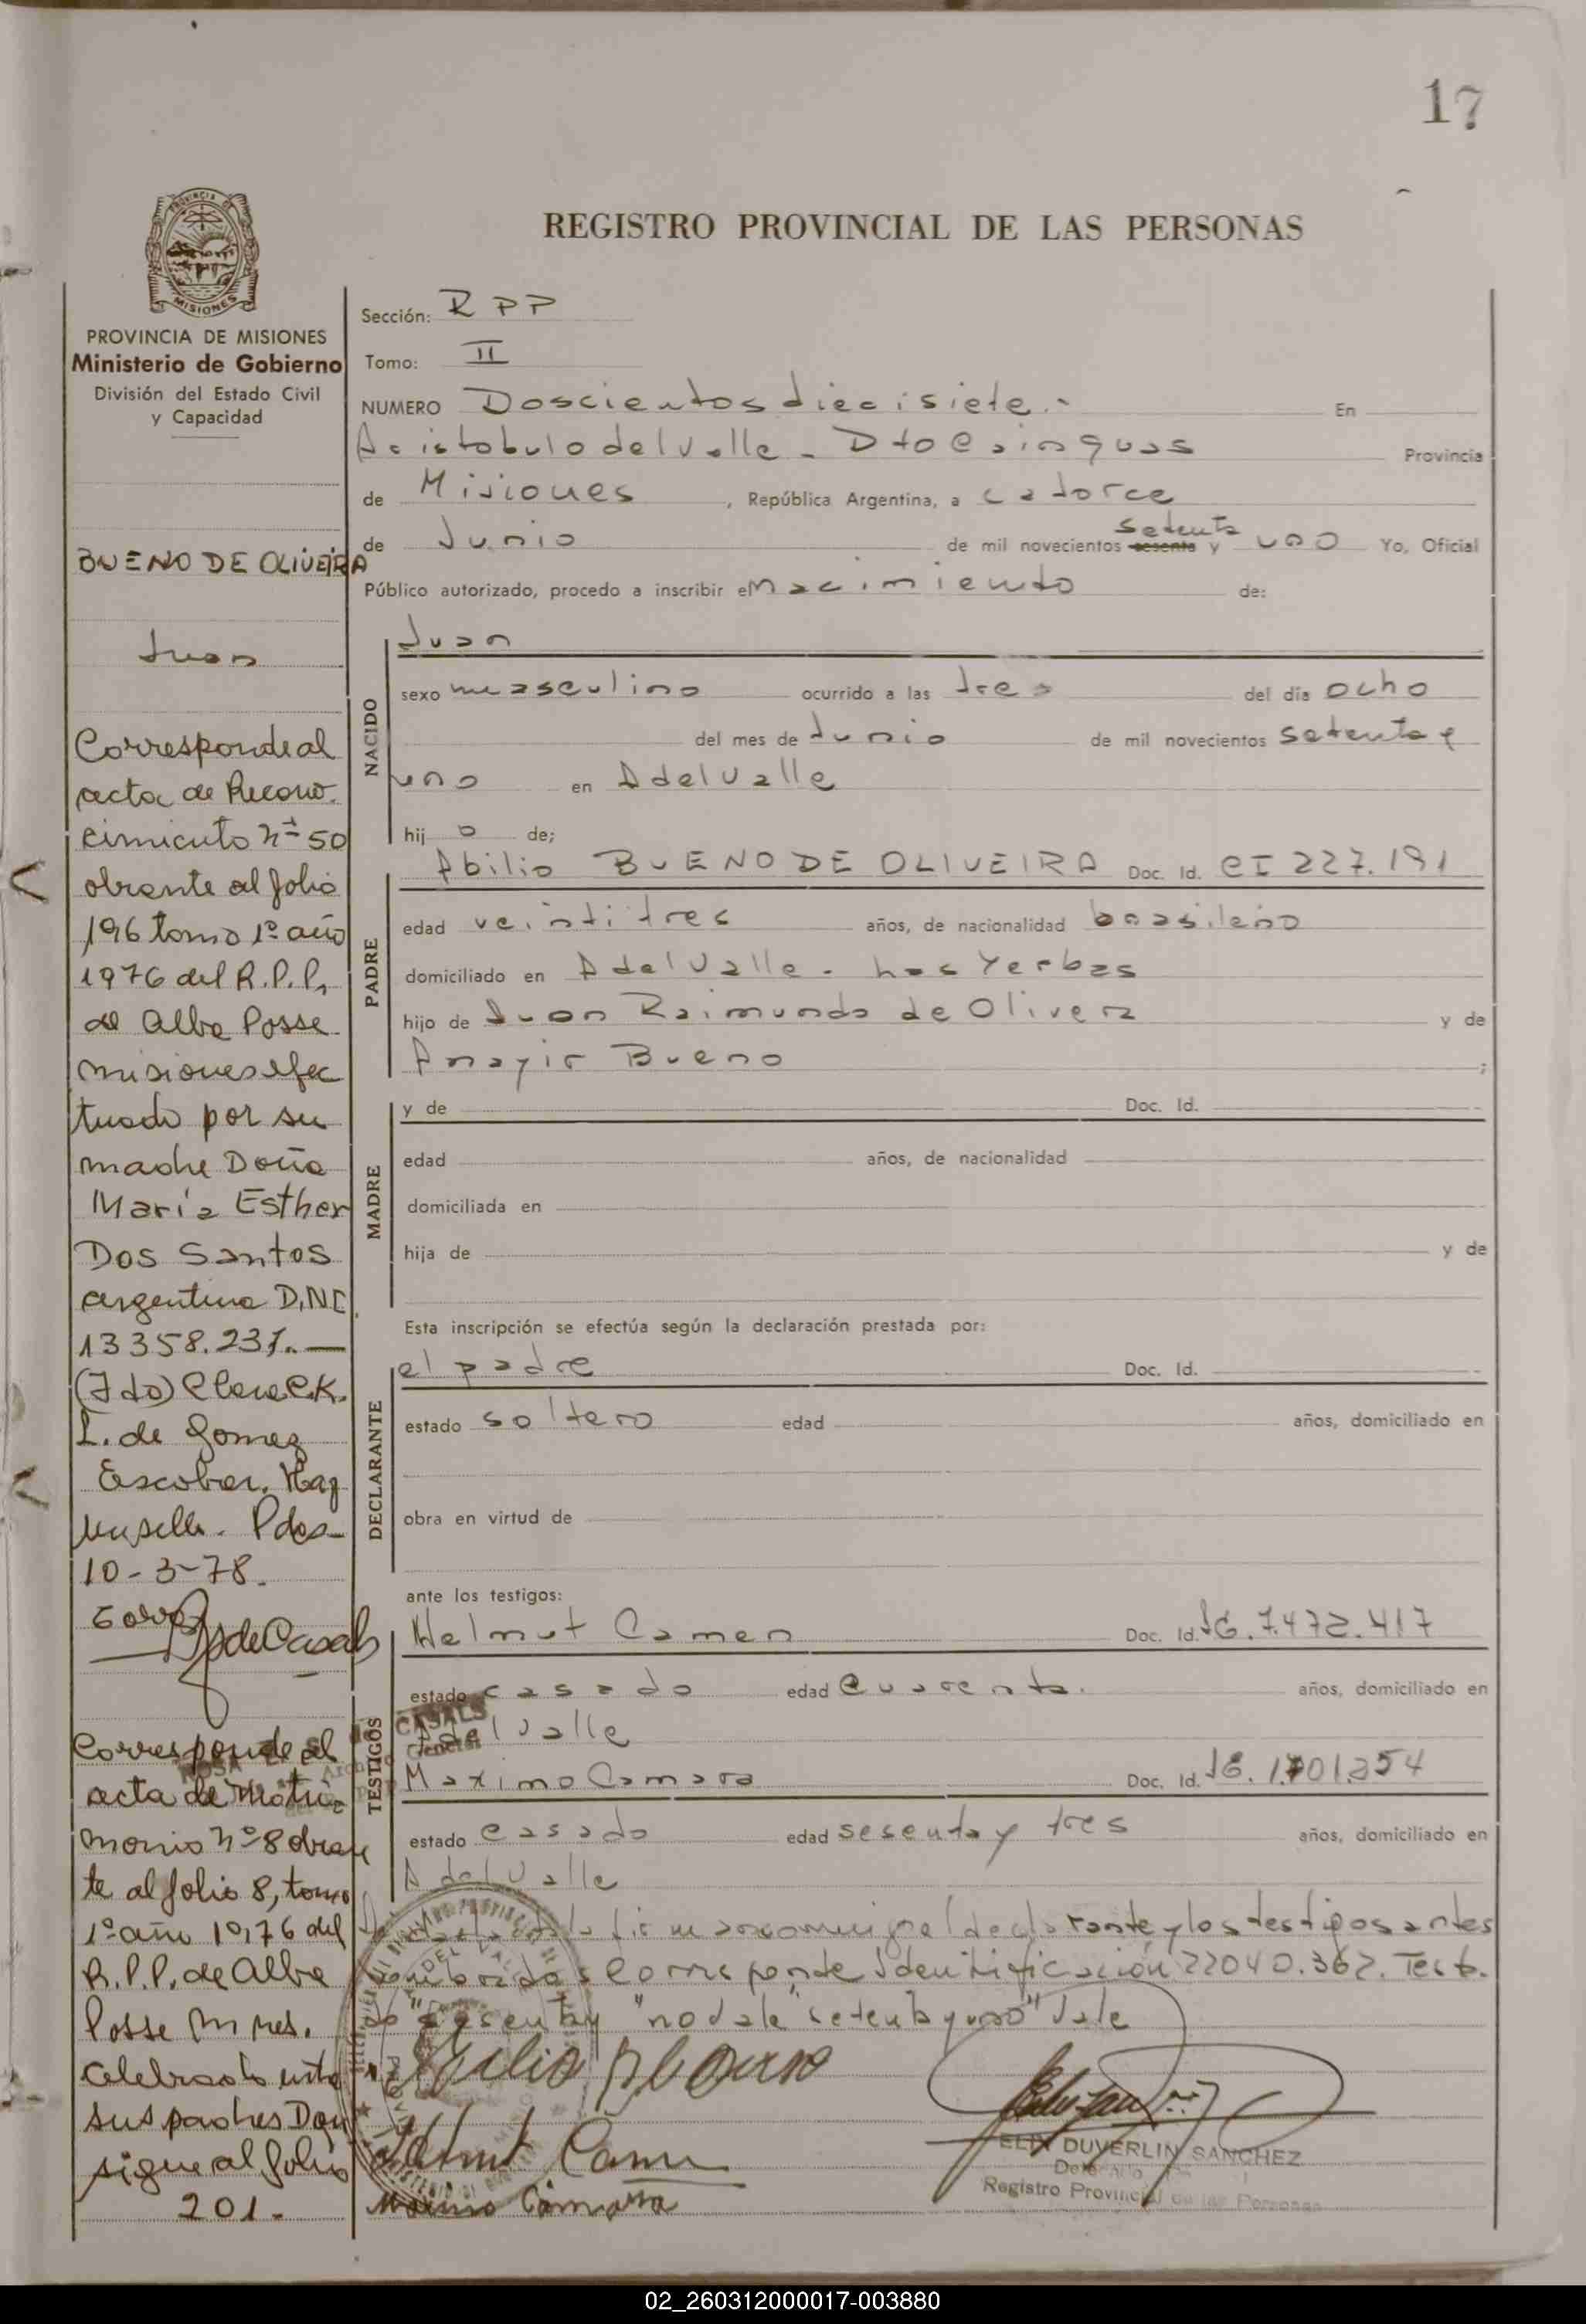 17
PROVINCIA DE MISIONES
Ministerio de Gobierno
División del Estado Civil
y Capacidad
REGISTRO PROVINCIAL DE LAS PERSONAS
Sección: RPP
Tomo: II
NUMERO Doscientos diecisiete.- En
Aristobulo del Valle - Dto Cainguas Provincia
de Misiones, República Argentina, a catorce
de Junio de mil novecientos sesenta setenta y uno Yo, Oficial
Público autorizado, procedo a inscribir el Nacimiento de:
NACIDO
Juan
sexo masculino ocurrido a las tres del día ocho
del mes de Junio de mil novecientos setenta y
uno en A del Valle
hij o de;
PADRE
Abilio BUENO DE OLIVEIRA Doc. Id. CI 227.191
edad veintitres años, de nacionalidad brasileño
domiciliado en A del Valle - Las Yerbas
hijo de Juan Raimundo de Olivera y de
Anayir Bueno ;
MADRE
y de Doc. Id.
edad años, de nacionalidad
domiciliada en
hija de y de
Esta inscripción se efectúa según la declaración prestada por:
DECLARANTE
el padre Doc. Id.
estado soltero edad años, domiciliado en
obra en virtud de
ante los testigos:
TESTIGOS
Helmut Camen Doc. Id. 7.472.417
estado casado edad Cuarenta. años, domiciliado en
A del Valle
Maximo Camara Doc. Id.
estado casado edad sesenta y tres años, domiciliado en
A del Valle
firman conmigo el declarante y los testigos antes
nombrados Corresponde Identificación 22040.362. Test.
do "sesenta y" no vale "setenta y uno" Vale
Maximo Camara
FELIX DUVERLIN SANCHEZ
Registro Provincial de las Personas
BUENO DE OLIVEIRA
Juan
Corresponde al
acta de Recono-
cimiento nº 50
obrante al folio
196 tomo 1º año
1976 del R.P.P,
de Alba Posse
misiones efec
tuado por su
madre Doña
María Esther
Dos Santos
argentina D.N.I
13358.231.—
(Fdo) Clara C.K.
L. de Gomez
Escobar.
Pdas-
10-3-78.
de Casals
Corresponde al
acta de Matri-
monio nº 8 obran
te al folio 8, tomo
1º año 1976 del
R.P.P. de Alba
Posse Mnes.
Celebrado entre
sus padres Don
sigue al folio
201.-
ROSA de CASALS
General
02_260312000017-003880